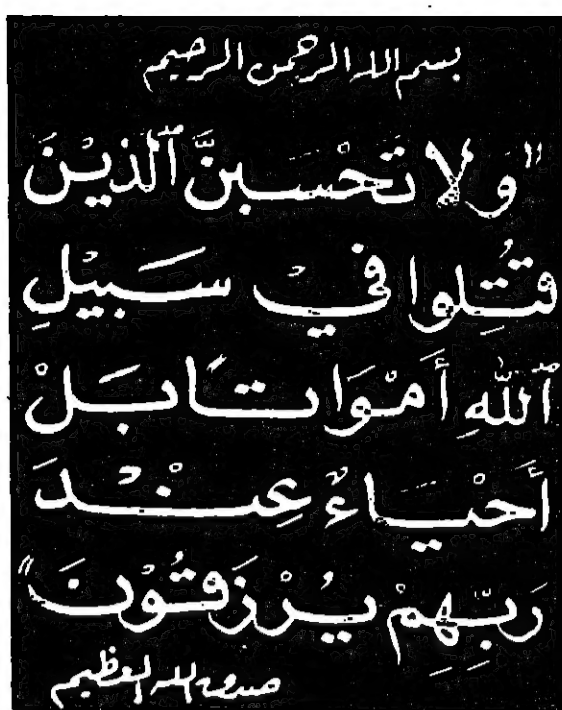 بسم الله الرحمن الرحيم
"وَلا تَحْسَبنَّ ٱلذيْنَ
قتُلِوا فيْ سَبيْلِ
ٱللهِ أَمْوَاتاً بَلْ
أَحْيَاءٌ عِنْدَ
رَبِّهِمْ يُرْزَقُوْنَ"
صدق الله العظيم